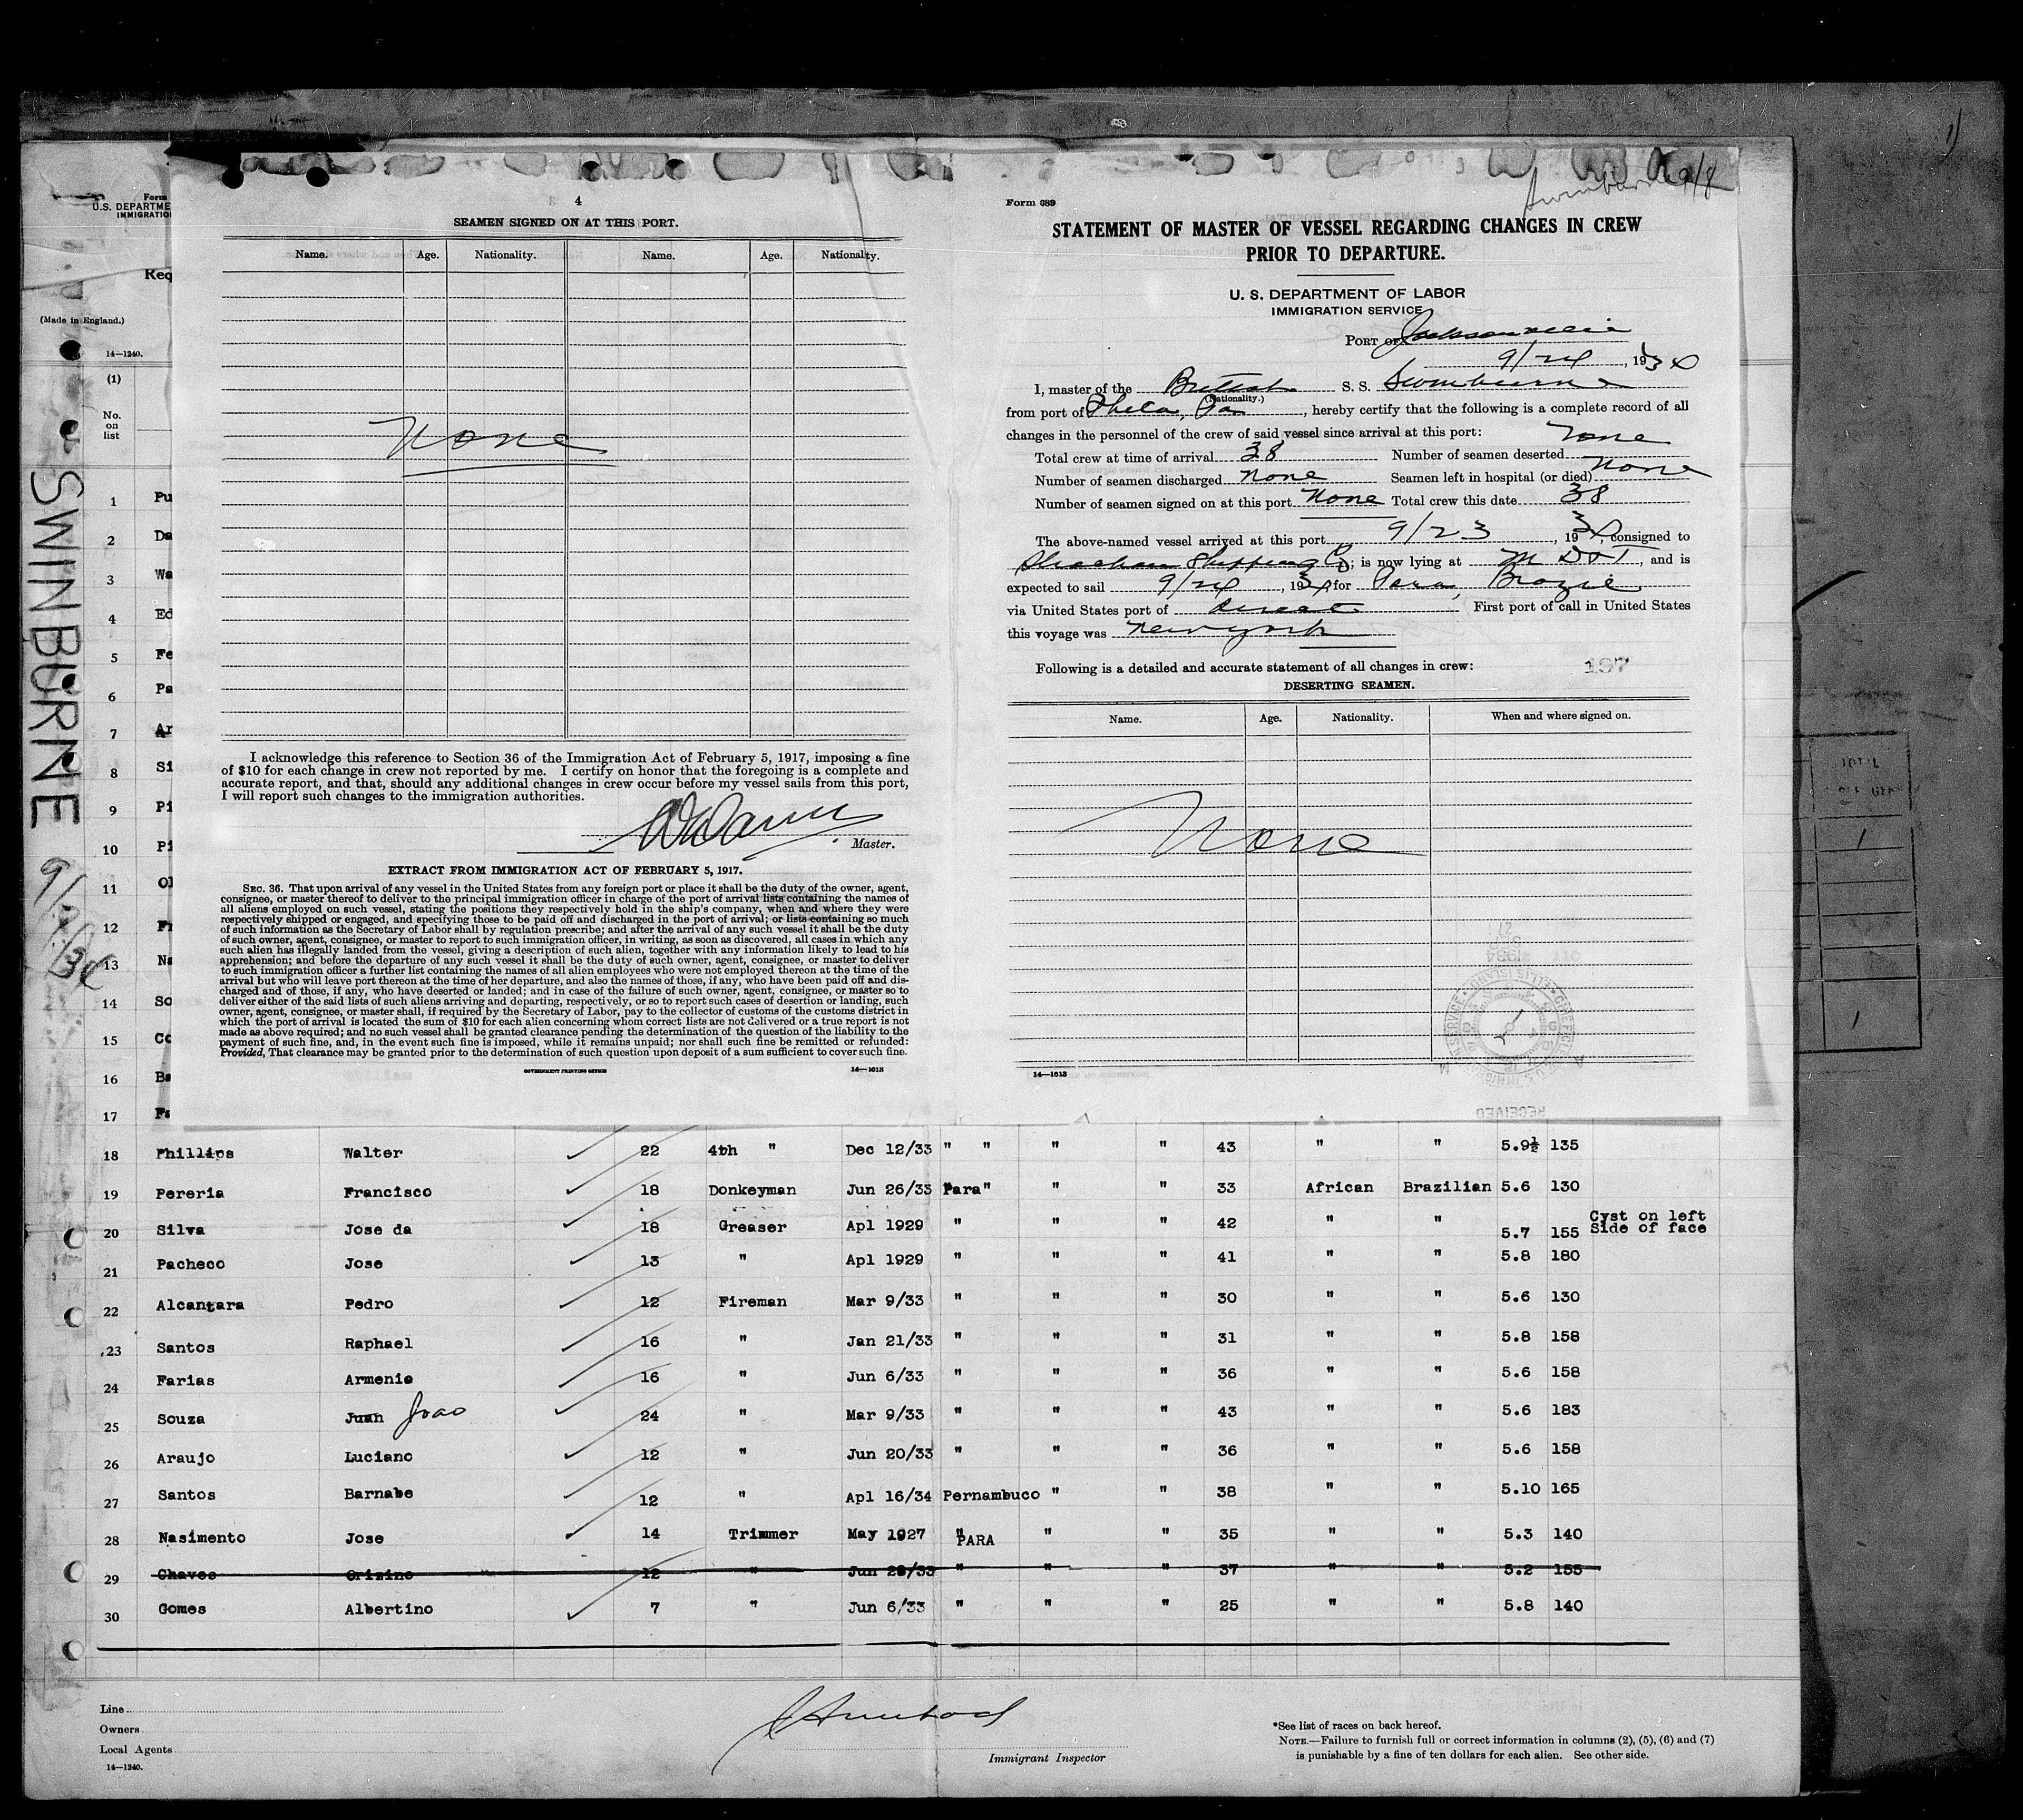 4
SEAMEN SIGNED ON AT THIS PORT.
Name. Age. Nationality. Name. Age. Nationality.
None
I acknowledge this reference to Section 36 of the Immigration Act of February 5, 1917, imposing a fine
of $10 for each change in crew not reported by me. I certify on honor that the foregoing is a complete and
accurate report, and that, should any additional changes in crew occur before my vessel sails from this port,
I will report such changes to the immigration authorities.
Master.
EXTRACT FROM IMMIGRATION ACT OF FEBRUARY 5, 1917.
SEC. 36. That upon arrival of any vessel in the United States from any foreign port or place it shall be the duty of the owner, agent,
consignee, or master thereof to deliver to the principal immigration officer in charge of the port of arrival lists containing the names of
all aliens employed on such vessel, stating the positions they respectively hold in the ship's company, when and where they were
respectively shipped or engaged, and specifying those to be paid off and discharged in the port of arrival; or lists containing so much
of such information as the Secretary of Labor shall by regulation prescribe; and after the arrival of any such vessel it shall be the duty
of such owner, agent, consignee, or master to report to such immigration officer, in writing, as soon as discovered, all cases in which any
such alien has illegally landed from the vessel, giving a description of such alien, together with any information likely to lead to his
apprehension; and before the departure of any such vessel it shall be the duty of such owner, agent, consignee, or master to deliver
to such immigration officer a further list containing the names of all alien employees who were not employed thereon at the time of the
arrival but who will leave port thereon at the time of her departure, and also the names of those, if any, who have been paid off and dis-
charged and of those, if any, who have deserted or landed; and in case of the failure of such owner, agent, consignee, or master so to
deliver either of the said lists of such aliens arriving and departing, respectively, or so to report such cases of desertion or landing, such
owner, agent, consignee, or master shall, if required by the Secretary of Labor, pay to the collector of customs of the customs district in
which the port of arrival is located the sum of $10 for each alien concerning whom correct lists are not delivered or a true report is not
made as above required; and no such vessel shall be granted clearance pending the determination of the question of the liability to the
payment of such fine, and, in the event such fine is imposed, while it remains unpaid; nor shall such fine be remitted or refunded:
Provided, That clearance may be granted prior to the determination of such question upon deposit of a sum sufficient to cover such fine.
GOVERNMENT PRINTING OFFICE 14—1613
Form 689
STATEMENT OF MASTER OF VESSEL REGARDING CHANGES IN CREW
PRIOR TO DEPARTURE.
U. S. DEPARTMENT OF LABOR
IMMIGRATION SERVICE
PORT OF Jacksonville
9/24, 1934
I, master of the British S. S. Swinburne
(Nationality.)
from port of Phila, Pa, hereby certify that the following is a complete record of all
changes in the personnel of the crew of said vessel since arrival at this port:
Total crew at time of arrival 38 Number of seamen deserted None
Number of seamen discharged None Seamen left in hospital (or died) None
Number of seamen signed on at this port None Total crew this date 38
The above-named vessel arrived at this port 9/23, 1934, consigned to
Strachan Shipping Co; is now lying at M D & T, and is
expected to sail 9/24, 1934 for Para, Brazil
via United States port of direct First port of call in United States
this voyage was New york
Following is a detailed and accurate statement of all changes in crew: 197
DESERTING SEAMEN.
Name. Age. Nationality. When and where signed on.
None
14—1613
Form
U.S. DEPARTME
IMMIGRATIO
Req
(Made in England.)
14—1240.
(1)
No.
on
list
SWINBURNE
1 Pu
2 Da
3 Wa
4 Ed
5 Fe
6 Pa
7 Ar
8 Si
9 Pi
10 Pi
11 Ol
12 Fr
13 Na
14 So
15 Co
16 Ba
17 Fa
18 Phillips Walter 22 4th " Dec 12/33 " " " " 43 " " 5.9½ 135
19 Pereria Francisco 18 Donkeyman Jun 26/33 Para" " " 33 African Brazilian 5.6 130
20 Silva Jose da 18 Greaser Apl 1929 " " " 42 " " 5.7 155 Cyst on left
Side of face
21 Pacheco Jose 13 " Apl 1929 " " " 41 " " 5.8 180
22 Alcantara Pedro 12 Fireman Mar 9/33 " " " 30 " " 5.6 130
23 Santos Raphael 16 " Jan 21/33 " " " 31 " " 5.8 158
24 Farias Armenio 16 " Jun 6/33 " " " 36 " " 5.6 158
25 Souza Juan Joao 24 " Mar 9/33 " " " 43 " " 5.6 183
26 Araujo Luciano 12 " Jun 20/33 " " " 36 " " 5.6 158
27 Santos Barnabe 12 " Apl 16/34 Pernambuco " " 38 " " 5.10 165
28 Nasimento Jose 14 Trimmer May 1927 " PARA " " 35 " " 5.3 140
29 Chaves Orizino 12 " Jun 28/33 " " " 37 " " 5.2 155
30 Gomes Albertino 7 " Jun 6/33 " " " 25 " " 5.8 140
Line
Owners
Local Agents
14—1240.
Immigrant Inspector
*See list of races on back hereof.
NOTE.—Failure to furnish full or correct information in columns (2), (5), (6) and (7)
is punishable by a fine of ten dollars for each alien. See other side.